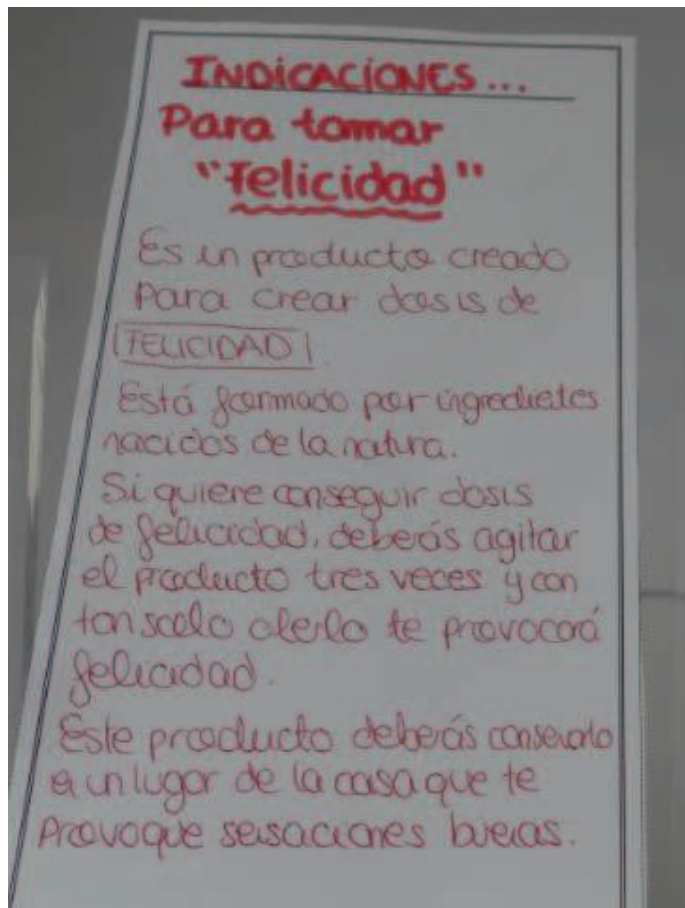 INDICACIONES...
Para tomar
"felicidad"
Es un producto creado
para crear dosis de
FELICIDAD
Está formado por ingredientes
nacidos de la natura.
Si quiere conseguir dosis
de felicidad, deberás agitar
el producto tres veces y con
tan solo olerlo te provocará
felicidad.
Este producto deberás conservarlo
en un lugar de la casa que te
Provoque sensaciones buenas.